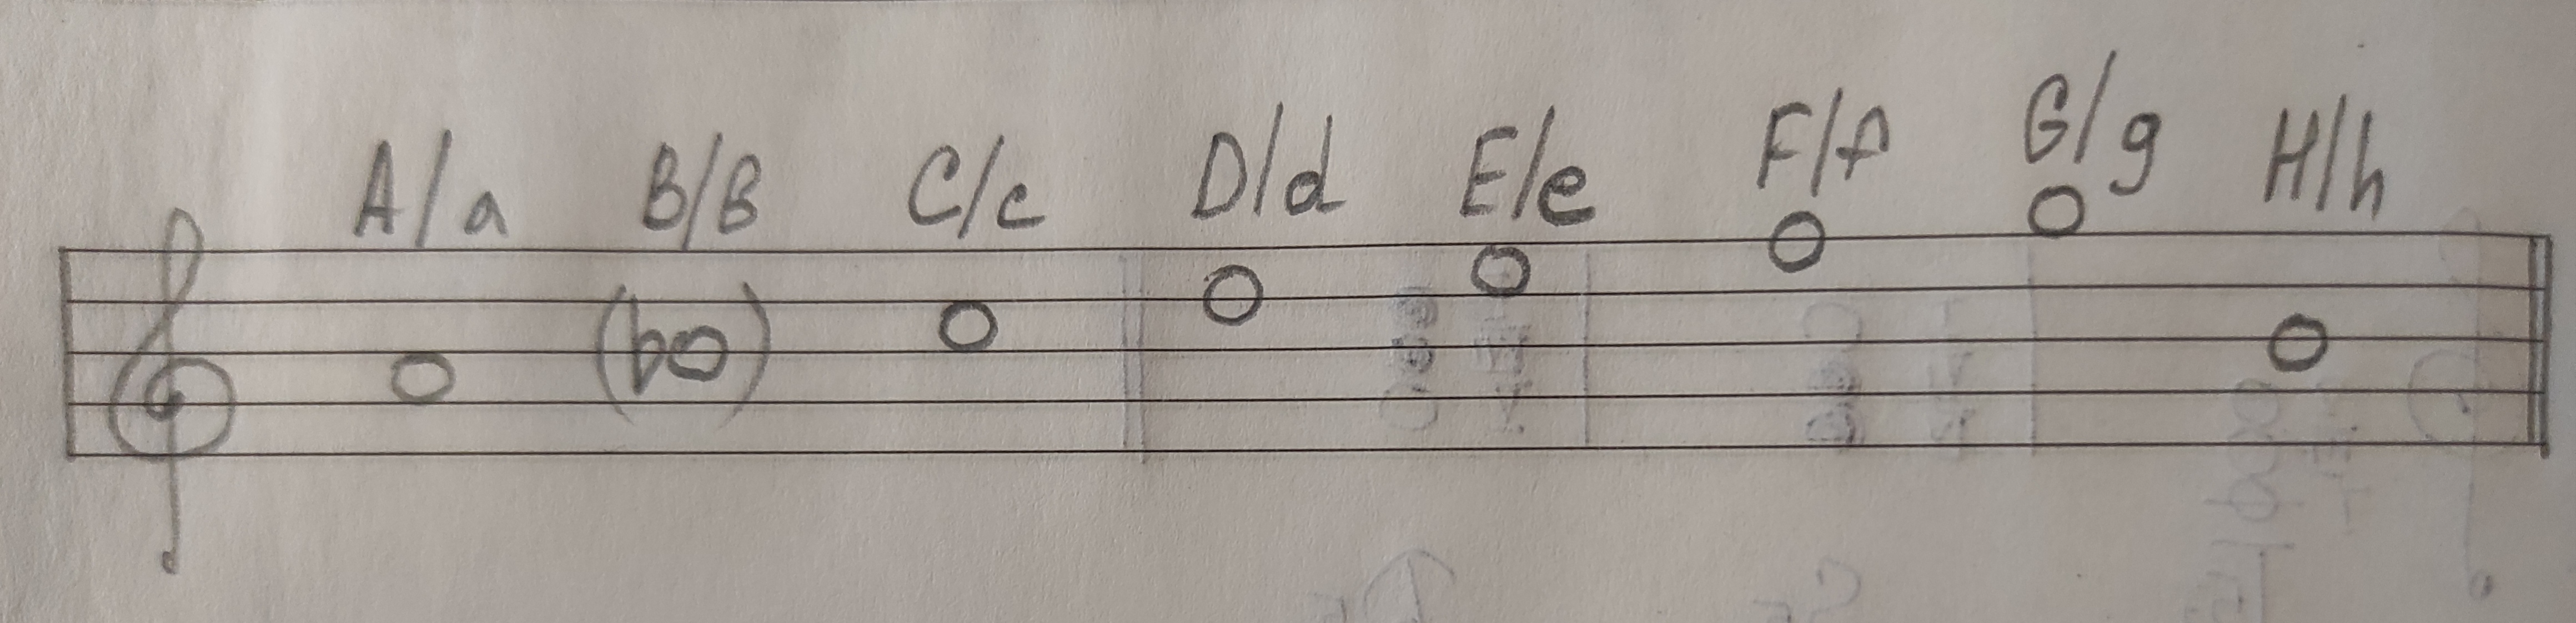 A/a B/B C/c D/d E/e F/f G/g H/h